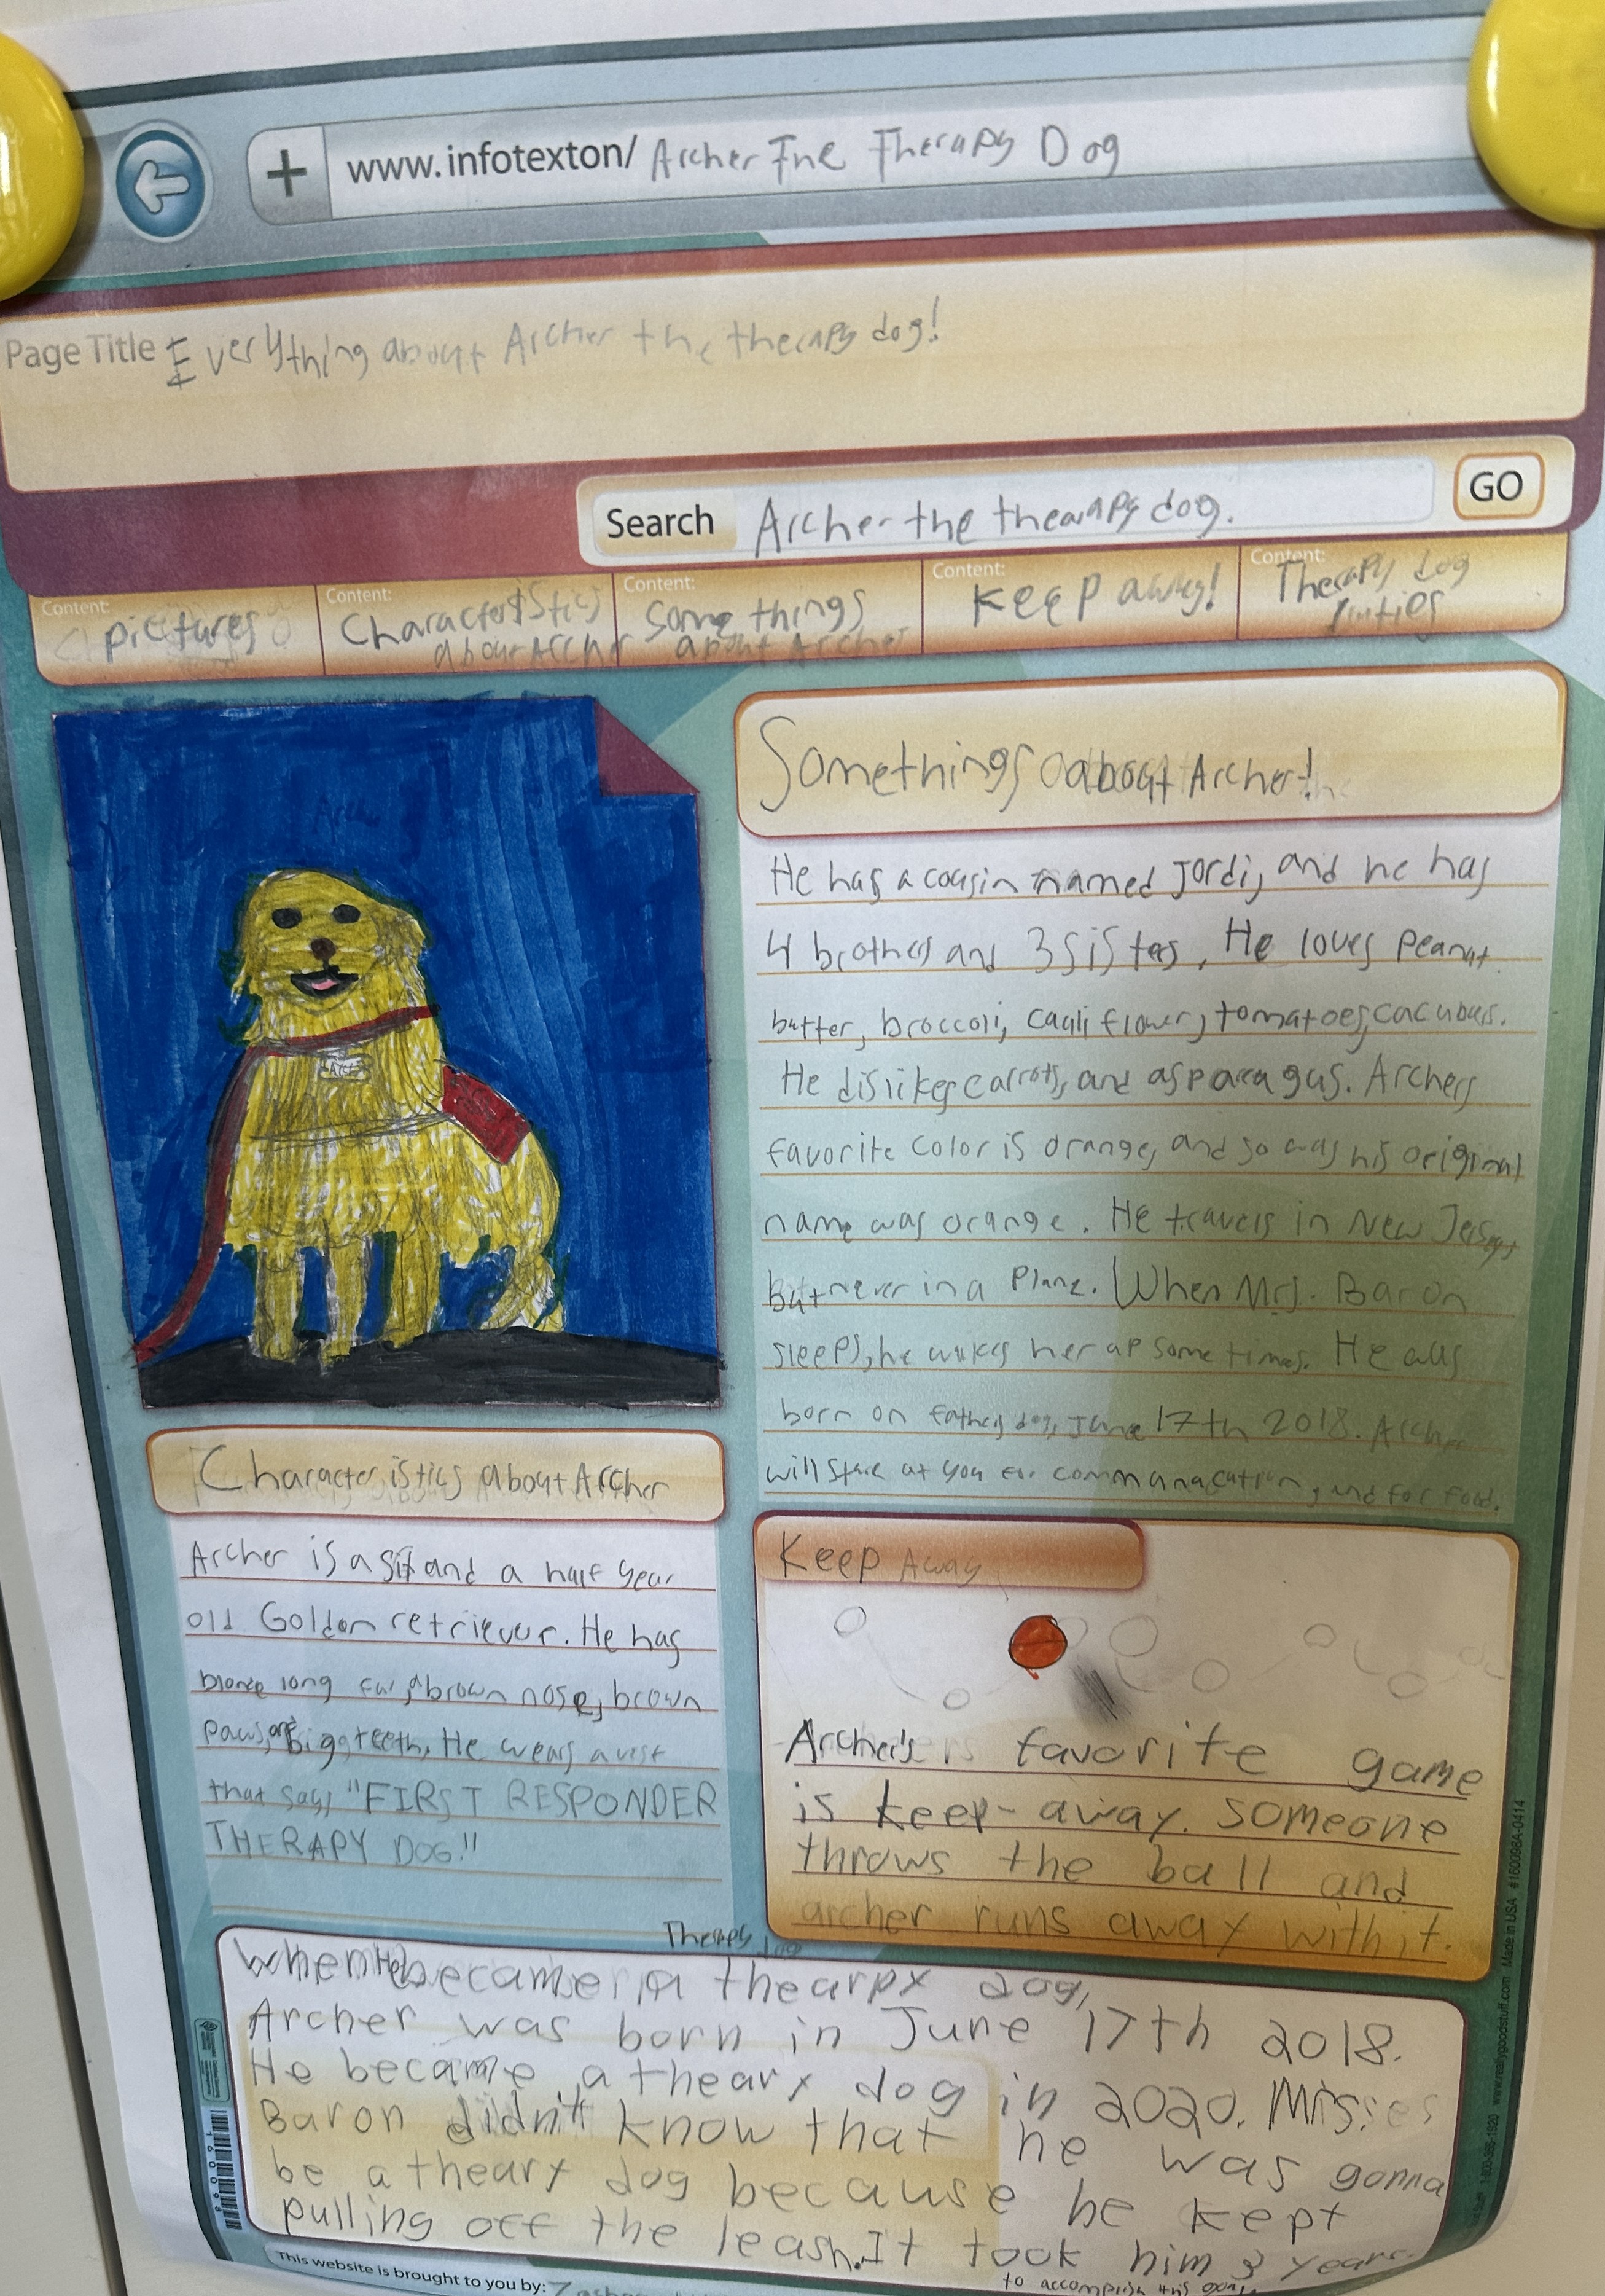 www.infotexton/ Archer The Therapy Dog
Page Title Everything about Archer the therapy dog!
Search Archer the thearapy dog. GO
Content: pictures
Content: Characteristics about Archer
Content: Some things about Archer
Content: Keep away!
Content: Therapy dog
Somethings about Archer!
He has a cousin named Jordi, and he has
4 brothers and 3 sisters. He loves peanut
butter, broccoli, cauliflower, tomatoes,
He dislikes carrots, and asparagus. Archers
favorite color is orange, and so was his original
name was orange. He travels in New Jersey,
But never in a plane. When Mrs. Baron
sleeps, he wakes her up some times. He was
born on fathers day, June 17th 2018. Archer
will stare at you for communacation, and for food.
Characteristics about Archer
Archer is a six and a half year
old Golden retriever. He has
long fur, brown nose, brown
paws, and big teeth. He wears a vest
that says "FIRST RESPONDER
THERAPY DOG."
Keep Away
Archer's favorite game
is keep-away. Someone
throws the ball and
archer runs away with it.
Therapy dog
When He became a thearpy dog,
Archer was born in June 17th 2018.
He became a theary dog in 2020. Misses
Baron didn't know that he was gonna
be a theary dog because he kept
pulling off the leash. It took him 3 years
to accomplish this goal.
This website is brought to you by:
160098
Made in USA #160098A-0414
1-800-366-1920 www.reallygoodstuff.com